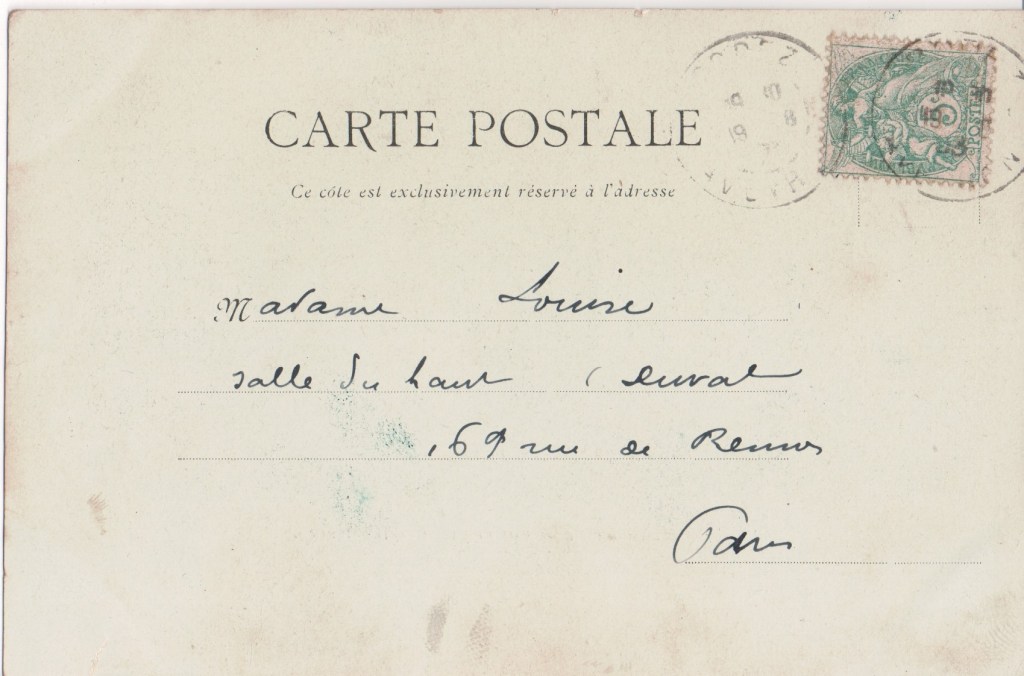 CARTE POSTALE
Ce côte est exclusivement réservé à l'adresse
Madame Louise
salle du haut (Duval
169 rue de Rennes
Paris
5
POSTES